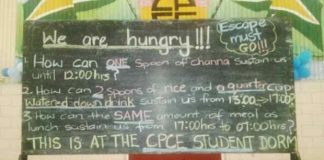 We are hungry!!!
Escape must GO!!!
1. How can ONE Spoon of channa sustain us
until 12:00hrs?
2. How can 2 Spoons of rice and a quarter cup
Watered down drink sustain us from 13:00 → 17:00?
3. How can the SAME amount of meal as
lunch sustain us from 17:00hrs to 07:00hrs?
THIS IS AT THE CPCE STUDENT DORM